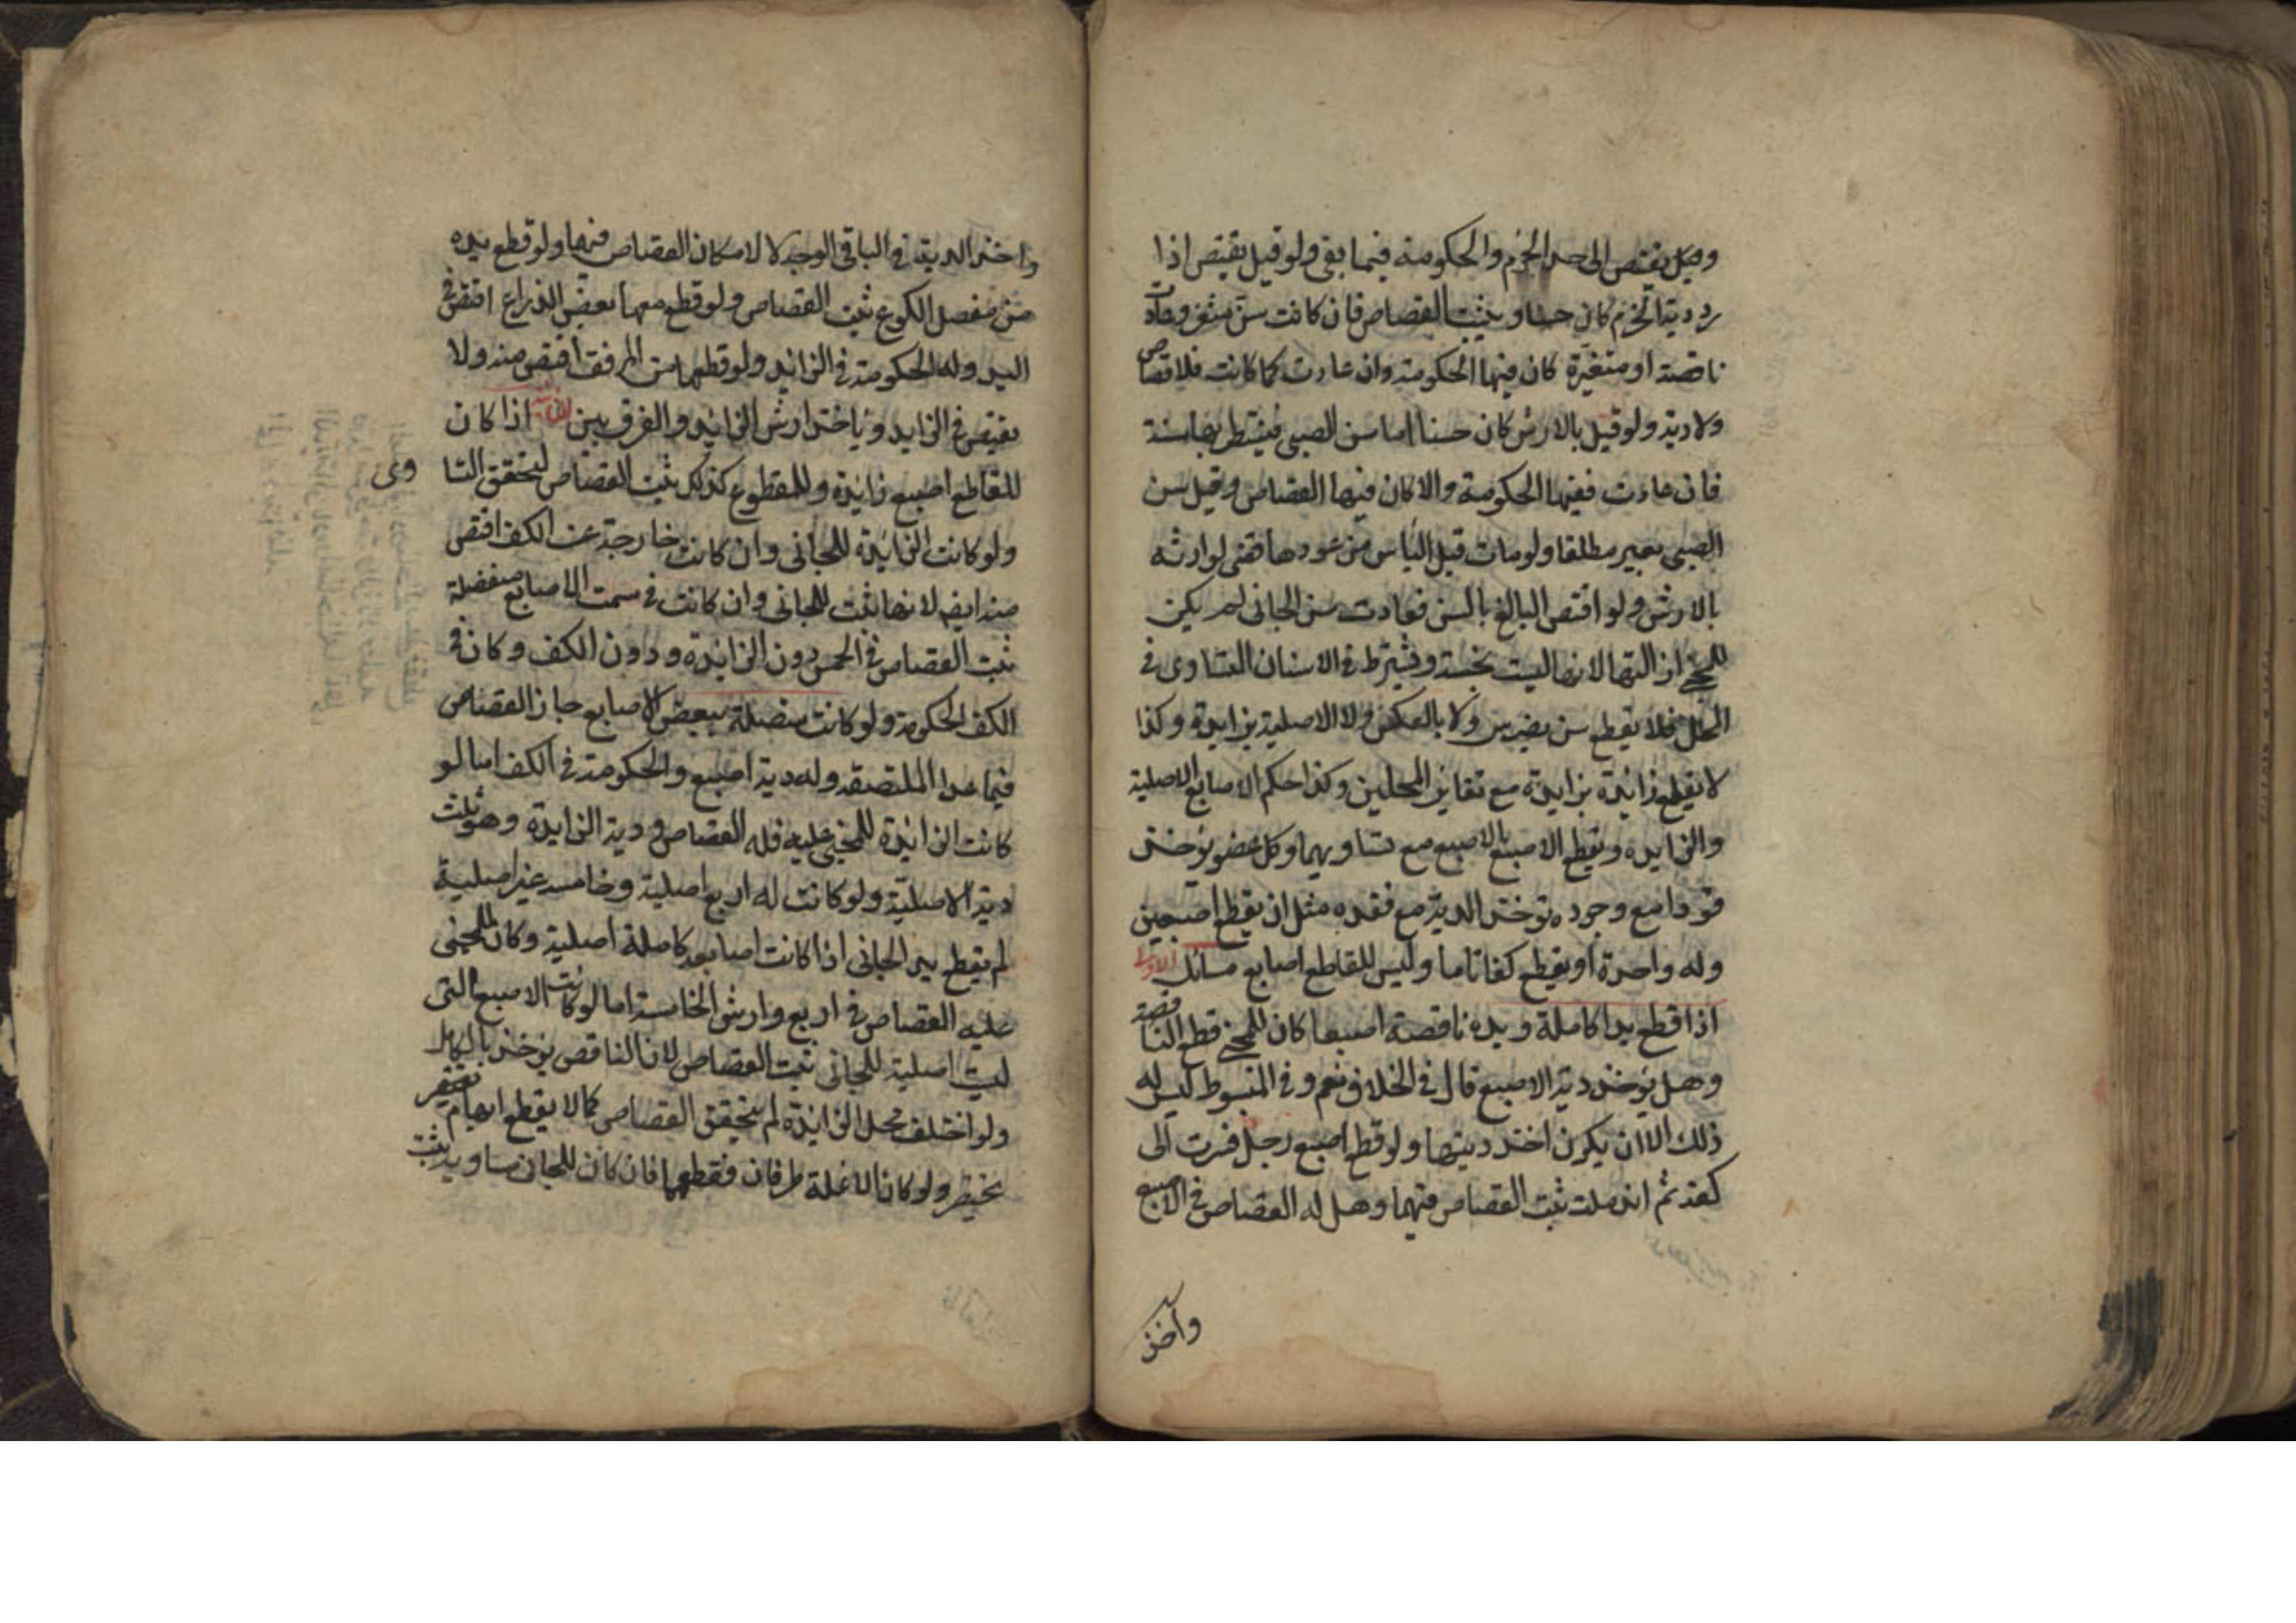 وقيل يقتص الى حد الخرم والحكومة فيما بقى ولو قيل يقتص اذا
رد دية الخرم كان حسنا ويثبت القصاص فان كانت سن مثغر وعادت
ناقصة او متغيرة كان فيها الحكومة وان عادت كما كانت فلا قصاص
ولا دية ولو قيل بالارش كان حسنا اما سن الصبى فينتظر بها سنة
فان عادت ففيها الحكومة والا كان فيها القصاص وقيل سن
الصبى بعير مطلقا ولو مات قبل الياس من عودها قضى لوارثه
بالارش ولو اقتص البالغ بالسن فعادت سن الجانى لم يكن
للمجنى ازالتها لانها ليست بجنسه ويشترط فى الاسنان التساوى فى
المحل فلا يقطع سن بضرس ولا بالعكس ولا الاصلية بزايدة وكذا
لا يقلع زائدة بزايدة مع تغاير المحلين وكذا حكم الاصابع الاصلية
والزايدة ويقطع الاصبع بالاصبع مع تساويهما وكل عضو يؤخذ
قودا مع وجوده تؤخذ الدية مع فقده مثل ان يقطع اصبعين
وله واحدة او يقطع كفا تاما وليس للقاطع اصابع مسائل الاولى
اذا قطع يدا كاملة ويده ناقصة اصبعا كان للمجنى قطع الناقصة
وهل يؤخذ دية الاصبع قال فى الخلاف نعم وفى المبسوط ليس له
ذلك الا ان يكون اخذ ديتها ولو قطع اصبع رجل فسرت الى
كفه ثم اندملت ثبت القصاص فيهما وهل له القصاص فى الاصبع
واخذ
واخذ الدية فى الباقى الوجه لا لامكان القصاص فيها ولو قطع يده
من مفصل الكوع ثبت القصاص ولو قطع معها بعض الذراع اقتص فى
اليد وله الحكومة فى الزائد ولو قطعها من المرفق اقتص منه ولا
يقتص فى الزايد وياخذ ارش الزائد والفرق بين الثانية اذا كان
للقاطع اصبع زائدة وللمقطوع كذلك ثبت القصاص لتحقق التسا
وى
ولو كانت الزائدة للجانى وان كانت خارجة عن الكف اقتص
منه ايضا لانها ثبت للجانى وان كانت فى سمت الاصابع منفصلة
ثبت القصاص فى الخمس دون الزائدة ودون الكف وكان فى
الكف الحكومة ولو كانت متصلة ببعض الاصابع جاز القصاص
فيما عدا الملتصقة وله دية اصبع والحكومة فى الكف اما لو
كانت الزائدة للمجنى عليه فله القصاص ودية الزايدة وهو ثلث
دية الاصلية ولو كانت له اربع اصلية وخامسه غير اصلية
لم يقطع يد الجانى اذا كانت اصابعه كاملة اصلية وكان للمجنى
عليه القصاص فى اربع وارش الخامسة اما لو كانت الاصبع التى
ليست اصلية للجانى ثبت القصاص لان الناقص يؤخذ بالكامل
ولو اختلف محل الزائدة لم يتحقق القصاص كما لا يقطع ابهام
بخنصر ولو كان لانملة طرفان فقطعهما فان كان للجانى مساويه ثبت